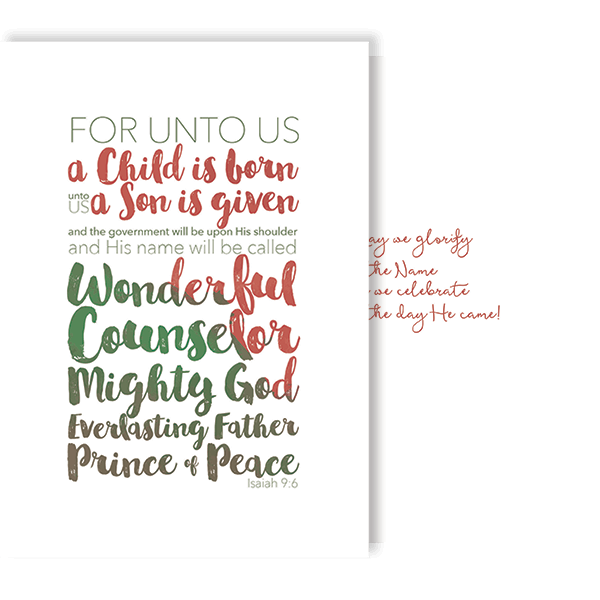 FOR UNTO US
a Child is born
unto US a Son is given
and the government will be upon His shoulder
and His name will be called
Wonderful
Counselor
Mighty God
Everlasting Father
Prince of Peace
Isaiah 9:6
we glorify
the Name
we celebrate
the day He came!